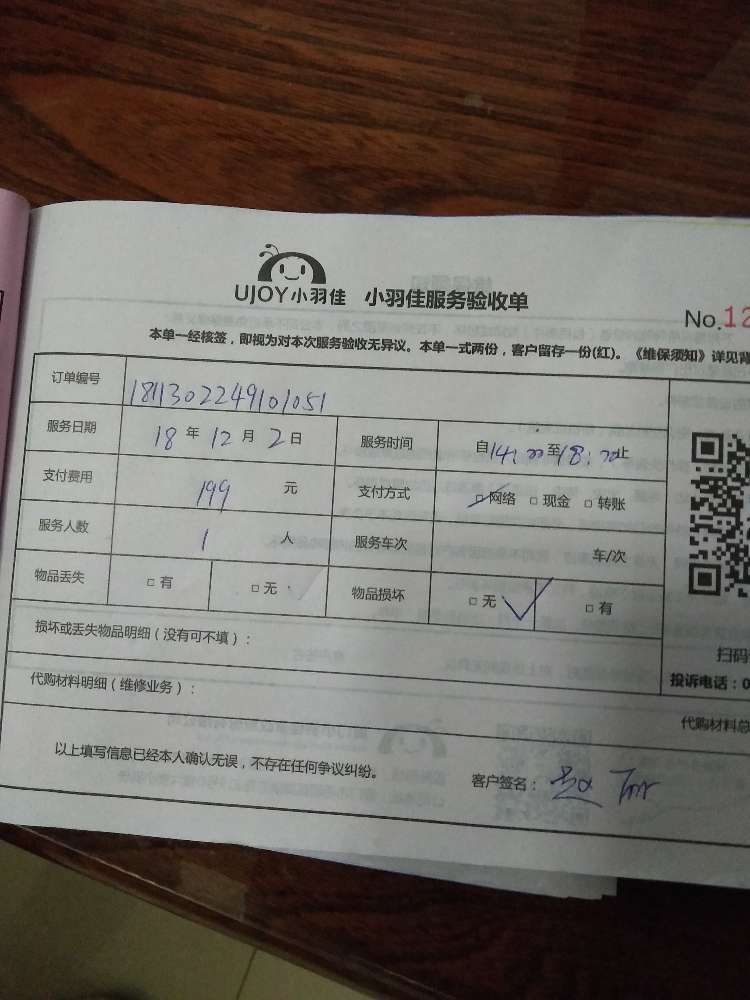 UJOY小羽佳 小羽佳服务验收单
No.12
本单一经核签，即视为对本次服务验收无异议。本单一式两份，客户留存一份(红)。《维保须知》详见背
订单编号 181130224910105１
服务日期 18 年 12 月 2 日 服务时间 自14:00至18:00止
支付费用 199 元 支付方式 □网络 □现金 □转账
服务人数 1 人 服务车次 车/次
物品丢失 □有 □无 物品损坏 □无 □有
损坏或丢失物品明细（没有可不填）：
扫码
投诉电话：0
代购材料明细（维修业务）：
代购材料总
以上填写信息已经本人确认无误，不存在任何争议纠纷。
客户签名：